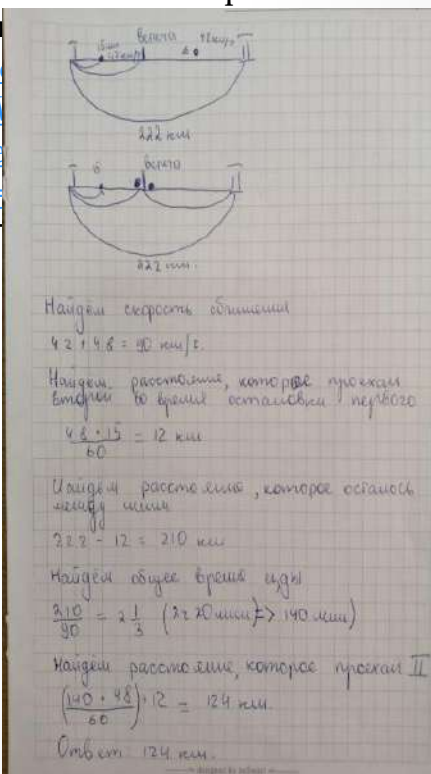 I встреча 48км/ч II
15мин 42км/ч
222 км
I встреча II
222 км.
Найдём скорость сближения
42 + 48 = 90 км/ч.
Найдём расстояние, которое проехал
второй во время остановки первого
48 * 15
60
= 12 км
Найдём расстояние, которое осталось
между ними
222 - 12 = 210 км
Найдём общее время езды
210
90
= 2 1/3 (2ч 20мин => 140 мин)
Найдём расстояние, которое проехал II
(140 * 48
60
) + 12 = 124 км.
Ответ: 124 км.